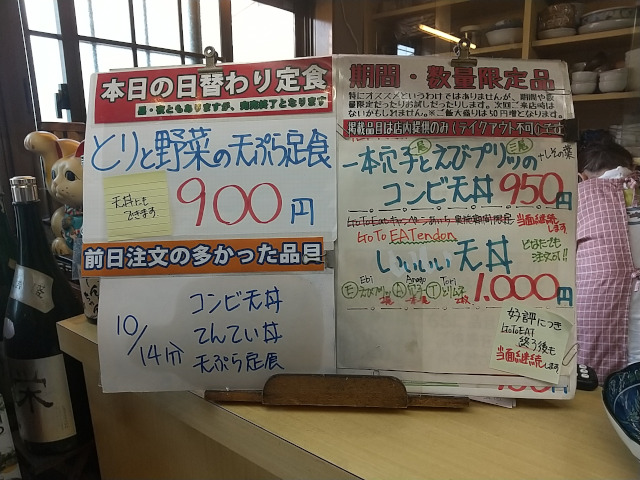 本日の日替わり定食
昼・夜ともありますが、完売終了となります
とりと野菜の天ぷら定食
天丼にも
できます
900円
前日注文の多かった品目
10/14分
コンビ天丼
てんてい丼
天ぷら定食
期間・数量限定品
特にオススメというわけではありませんが、期間や数
量限定だったりお試しだったりします。次回ご来店時は
ないかもしれません。※ご飯大盛りは50円増となります。
掲載品目は店内提供のみ(テイクアウト不可)
一本穴子とえびプリッツの
+しその葉
コンビ天丼 950円
当面継続します
GoTo EATendon
いいいい天丼
どなたでも
注文可!!
Ebi
Anago
Tori
1.000円
好評につき
GoToEAT
終了後も
当面継続します